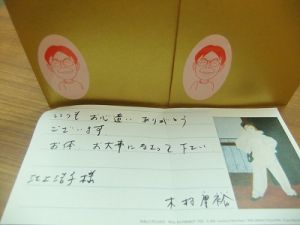 いつも お心遣い ありがとう
ございます
お体 お大事になさって下さい
様
木村